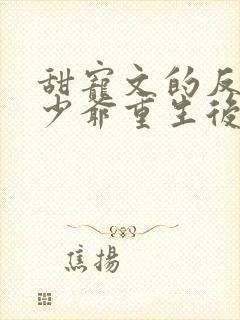 甜寵文的反
少爺重生後
焦揚